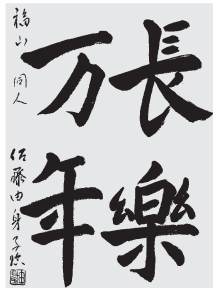 長樂
万年
福山 同人
佐藤由身子